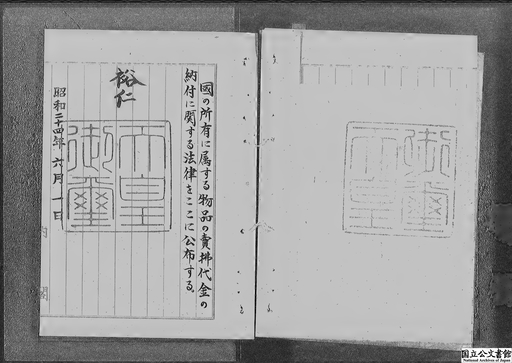 國の所有に属する物品の賣拂代金の
納付に関する法律をここに公布する。
裕仁
天皇
御璽
昭和二十四年六月一日
内閣
国立公文書館
National Archives of Japan